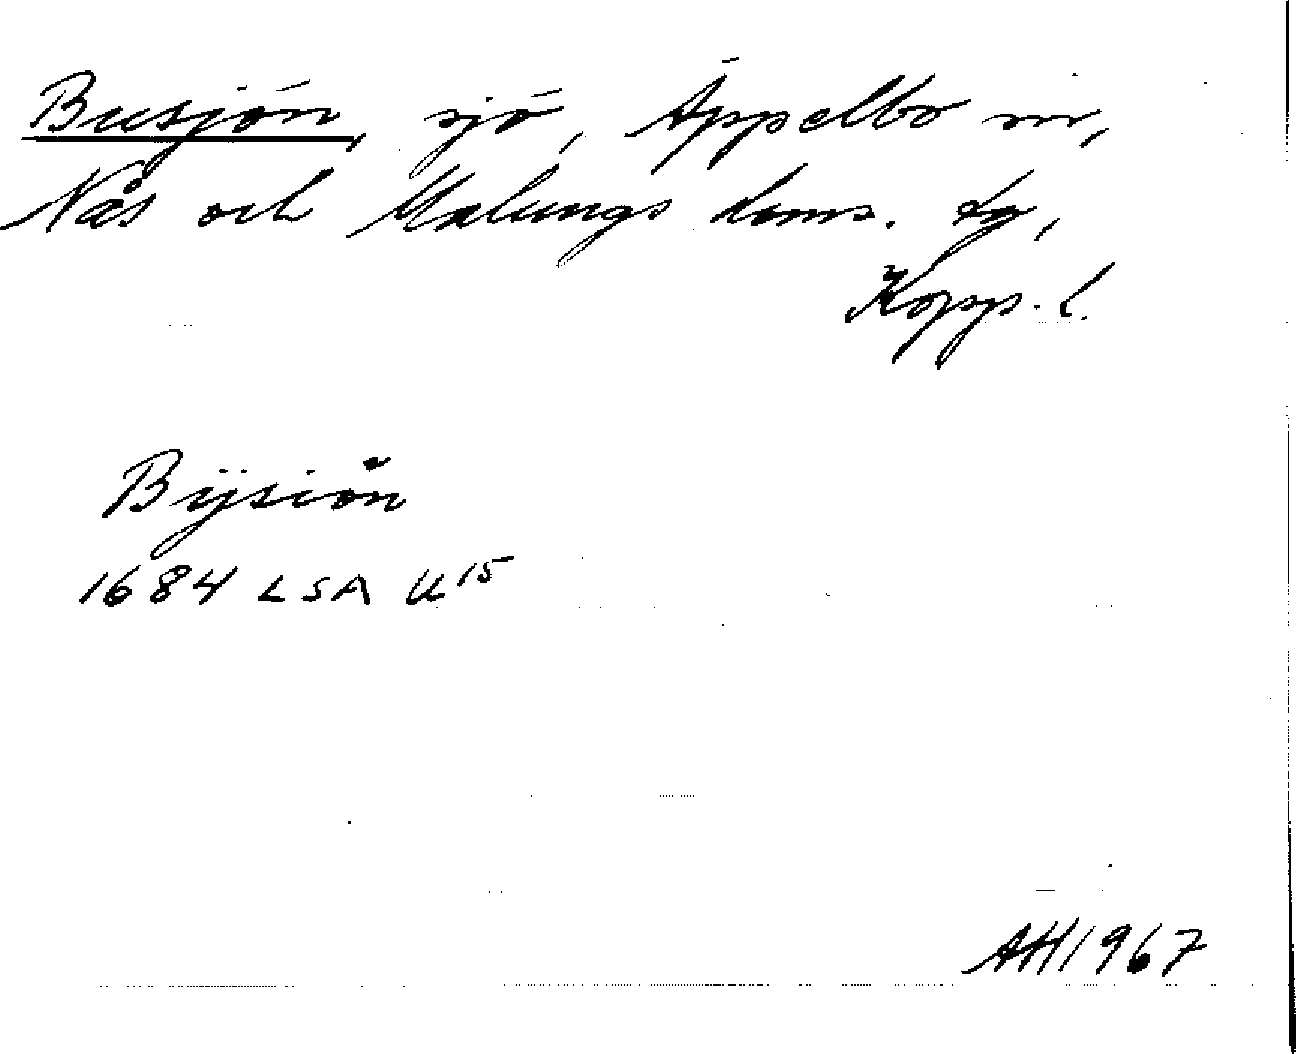 Busjön, sjö, Äppelbo sn,
Nås och Malungs doms. tg,
Kopp. l.
Bÿsiön
1684 LSA U15
AH 1967